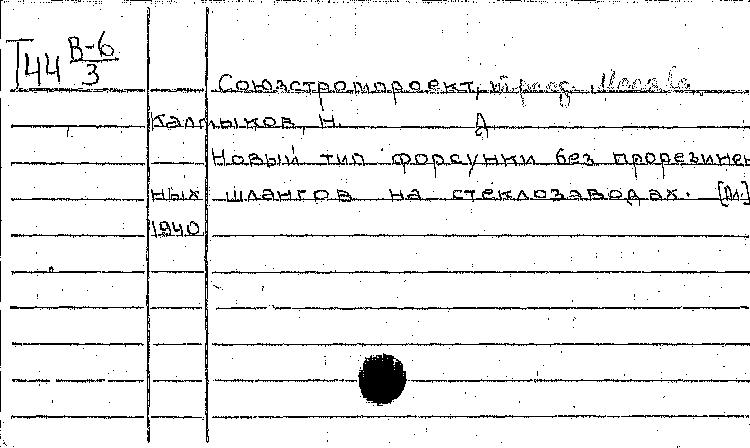 Т44 В-6/3
Союзстромпроект, трест. Москва.
Калмыков, Н. А
Новый тип форсунки без прорезинен
ных шлангов на стеклозаводах. [М.]
1940